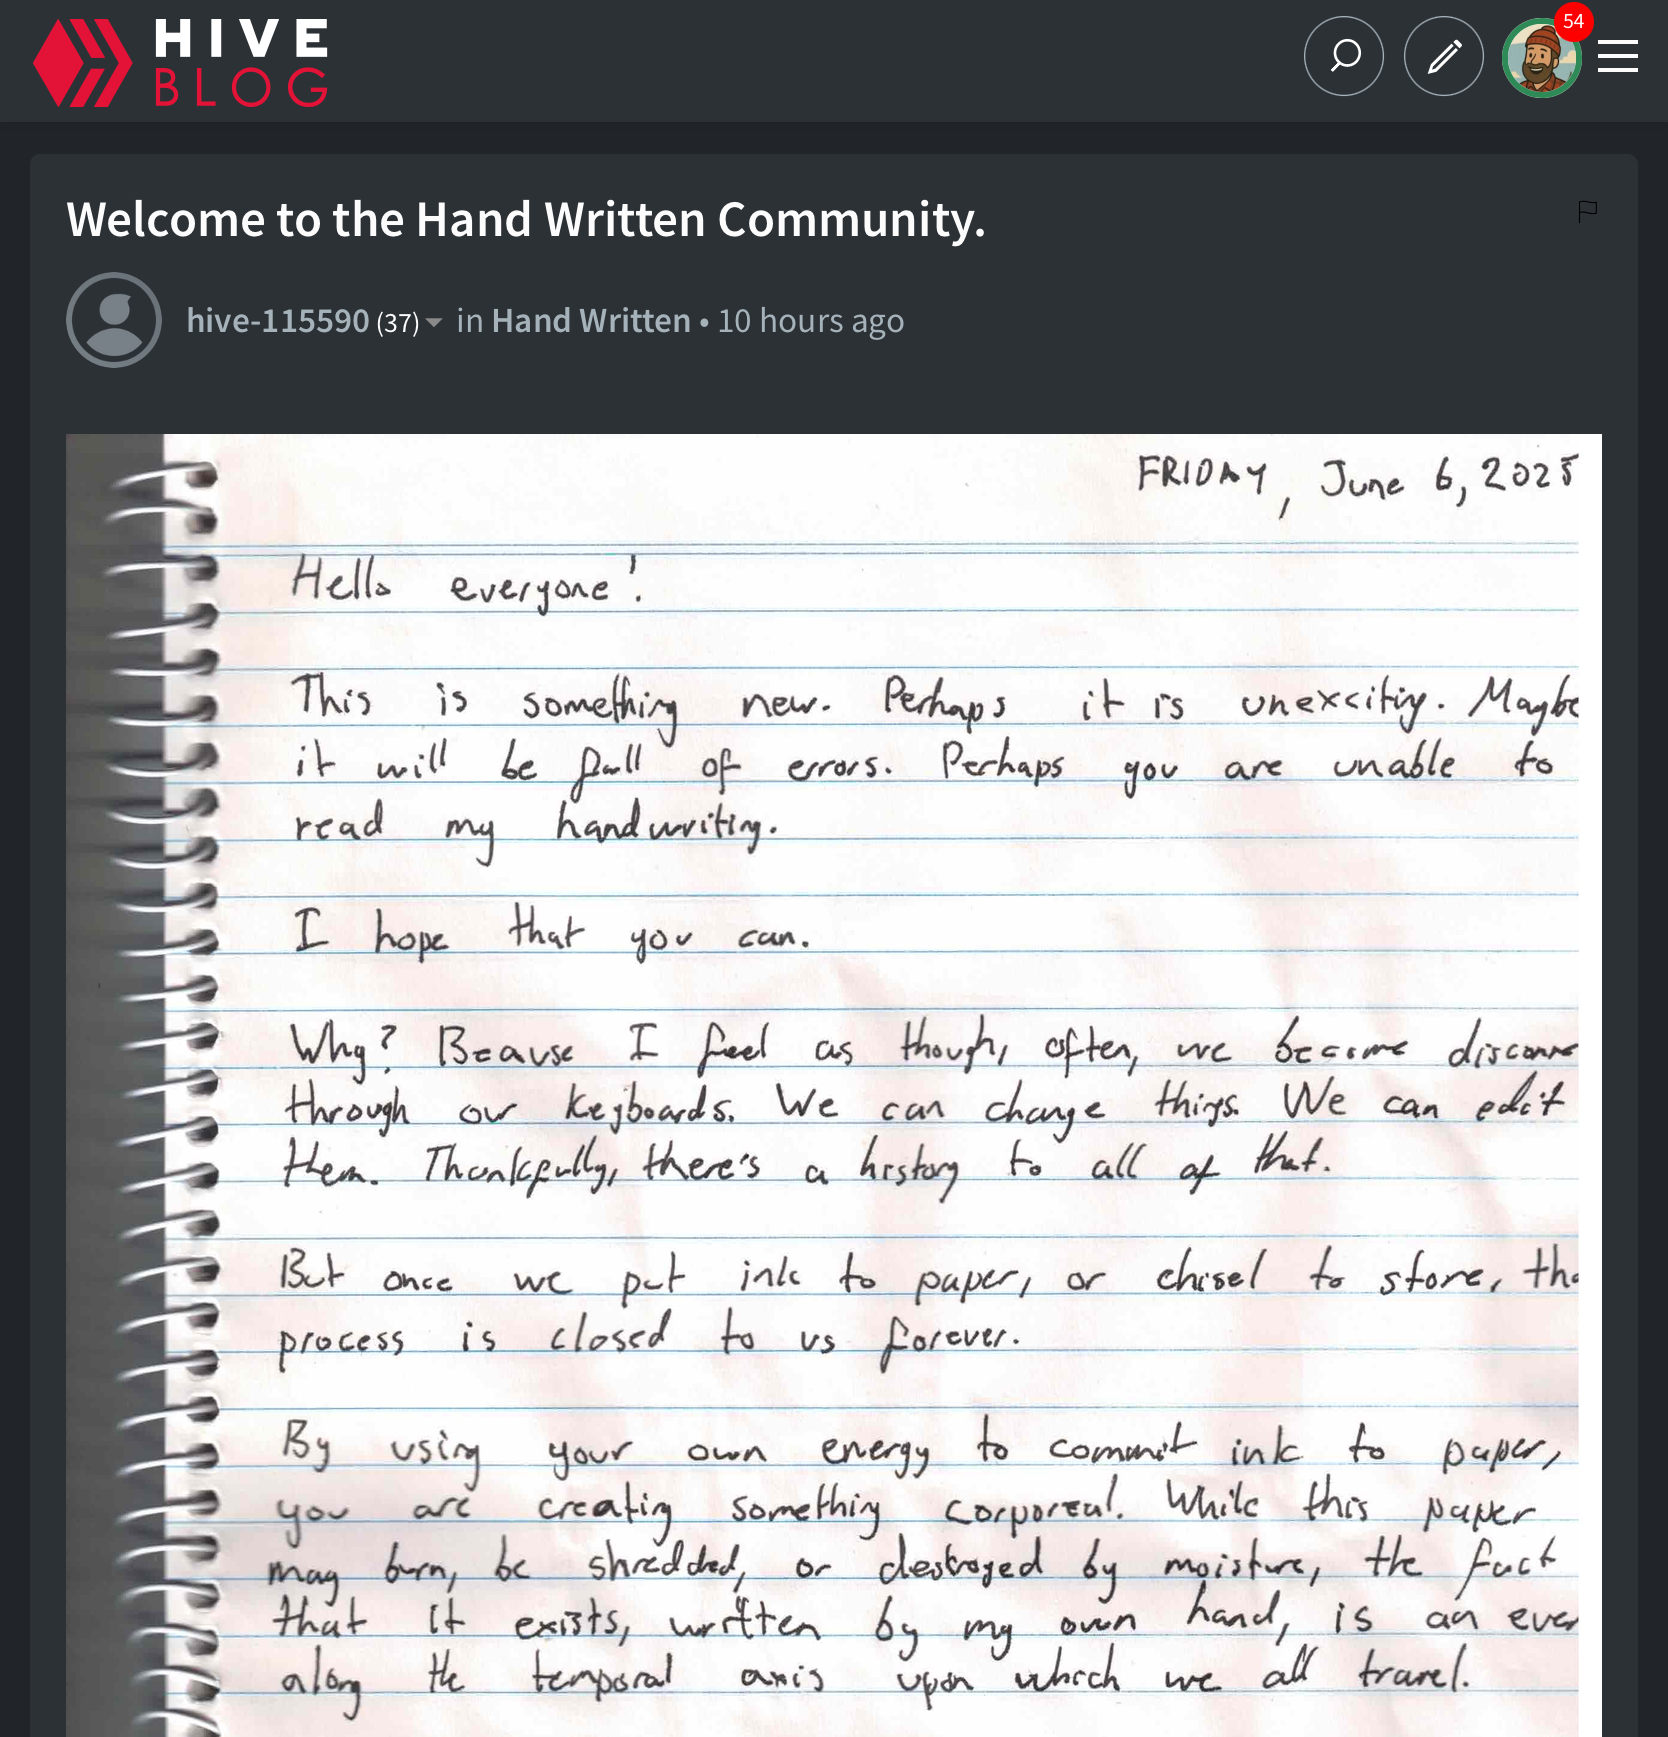 HIVE
BLOG
54
Welcome to the Hand Written Community.
hive-115590 (37) in Hand Written • 10 hours ago
FRIDAY, June 6, 2025
Hello everyone!
This is something new. Perhaps it is unexciting. Maybe
it will be full of errors. Perhaps you are unable to
read my handwriting.
I hope that you can.
Why? Beause I feel as though, often, we become disconne
through our keyboards. We can change things. We can edit
them. Thankfully, there's a history to all of that.
But once we put ink to paper, or chisel to stone, tha
process is closed to us forever.
By using your own energy to commit ink to paper,
you are creating something corporeal. While this paper
may burn, be shredded, or destroyed by moisture, the fact
that it exists, written by my own hand, is an even
along the temporal axis upon which we all travel.